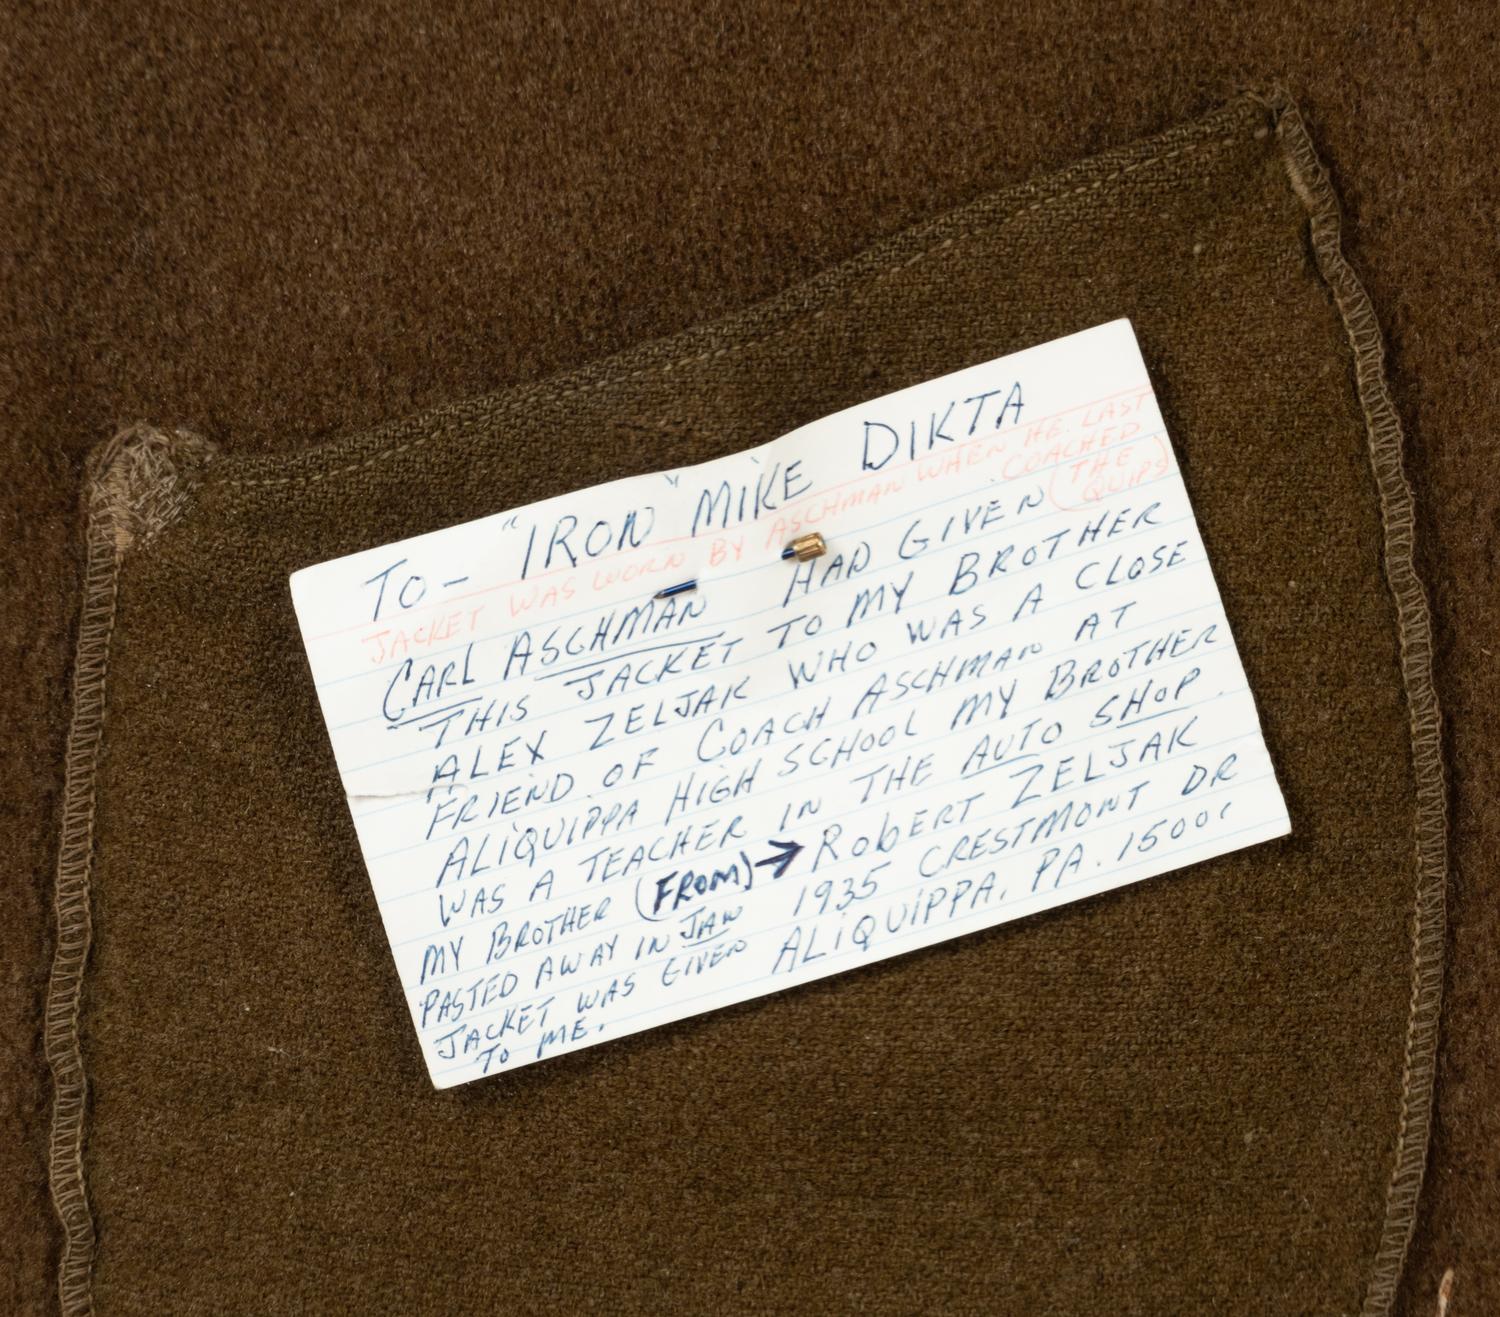 TO - "IRON MIKE" DIKTA
JACKET WAS WORN BY ASCHMAN WHEN HE LAST
COACHED
(THE
QUIPS)
CARL ASCHMAN HAD GIVEN
THIS JACKET TO MY BROTHER
ALEX ZELJAK WHO WAS A CLOSE
FRIEND OF COACH ASCHMAN AT
ALIQUIPPA HIGH SCHOOL MY BROTHER
WAS A TEACHER IN THE AUTO SHOP.
MY BROTHER (FROM) → ROBERT ZELJAK
PASTED AWAY IN JAN 1935 CRESTMONT DR
JACKET WAS GIVEN ALIQUIPPA, PA. 15001
TO ME.